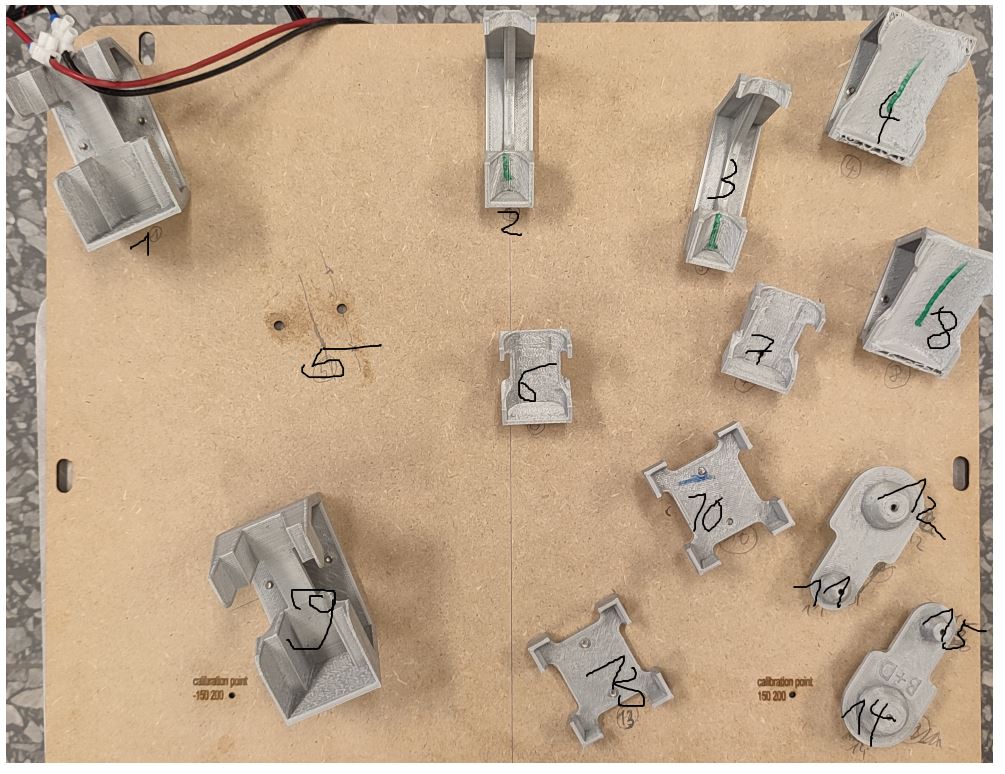 1
2
3
4
5
6
7
8
9
10
11
12
13
14
15
B+D
calibration point
-150 200
calibration point
150 200
13